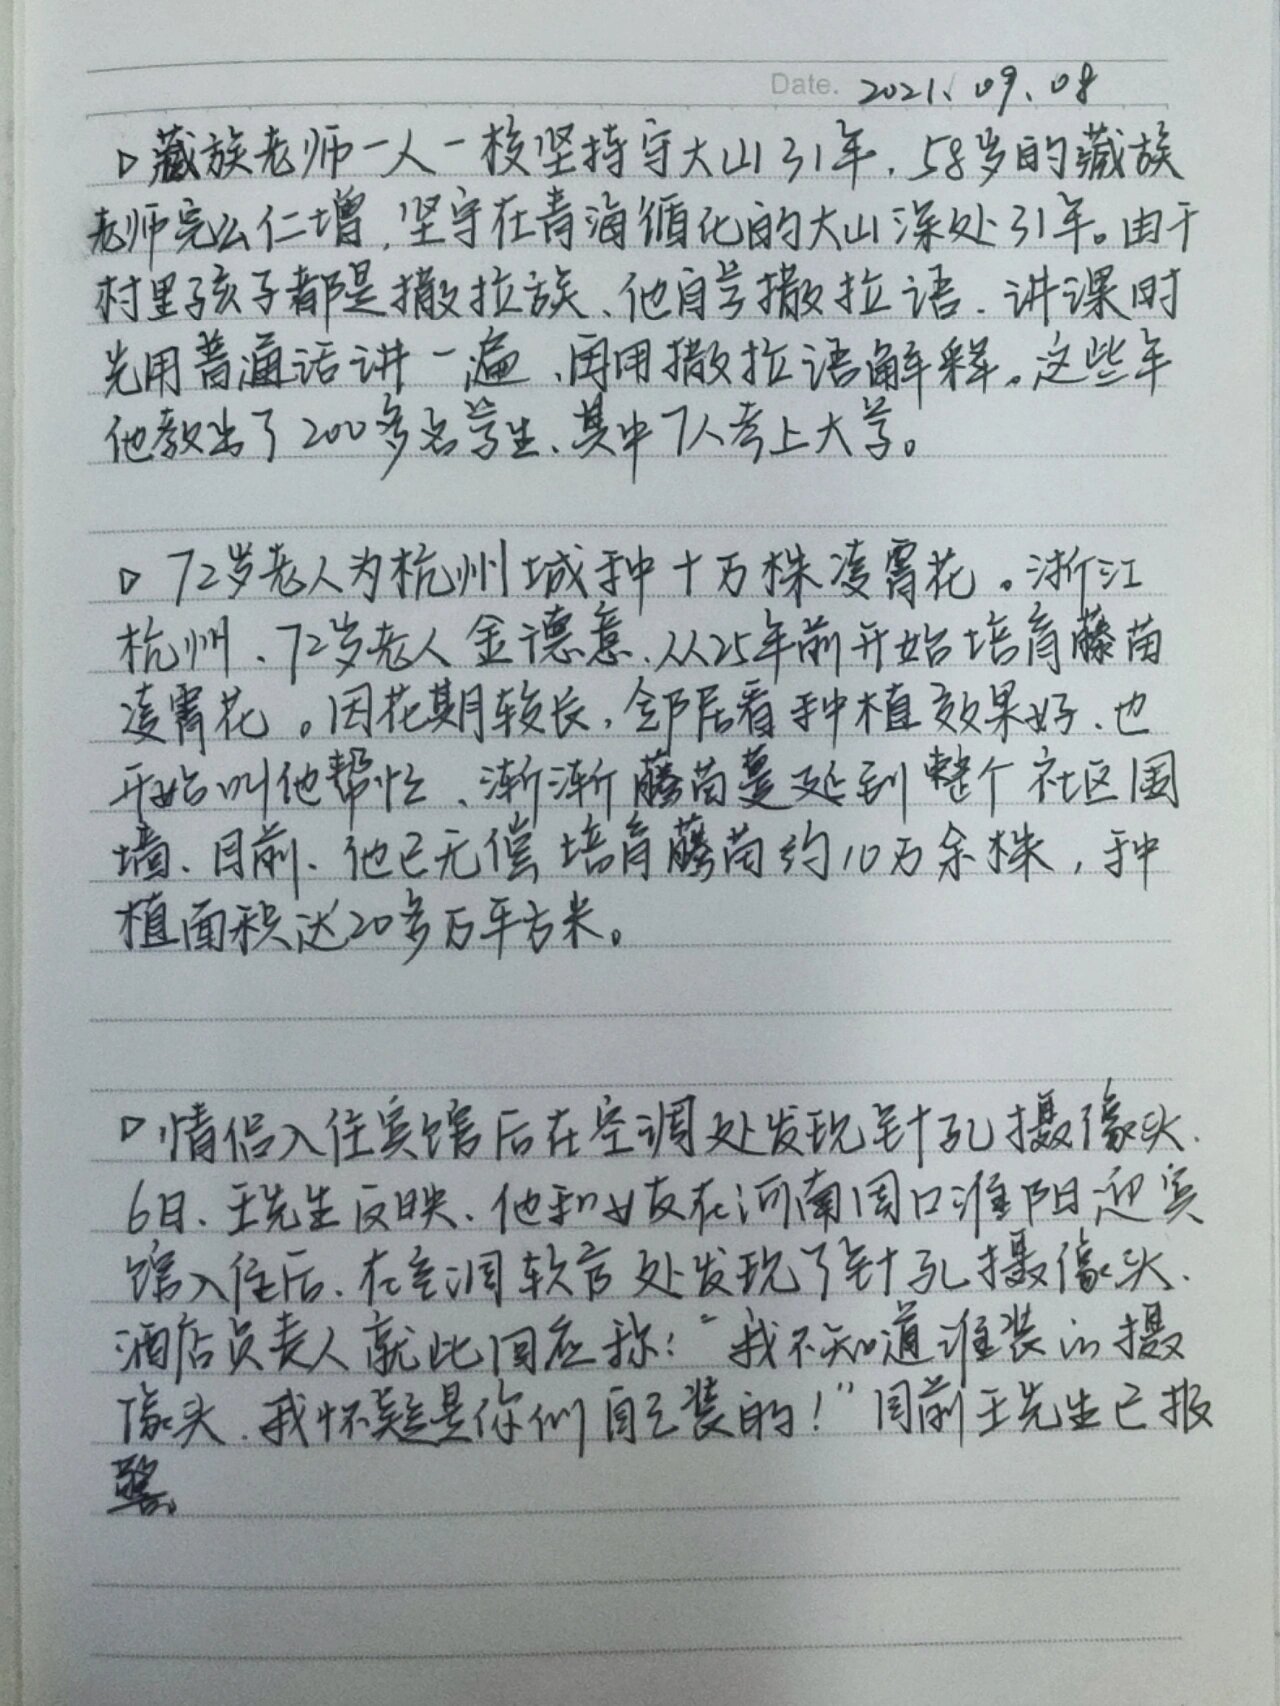 Date. 2021.09.08
▷藏族老师一人一校坚持守大山31年，58岁的藏族
老师完么仁增，坚守在青海循化的大山深处31年。由于
村里孩子都是撒拉族、他自学撒拉语．讲课时
先用普通话讲一遍、再用撒拉语解释。这些年
他教出了200多名学生、其中7人考上大学。
▷72岁老人为杭州城种十万株凌霄花。浙江
杭州、72岁老人金德意、从25年前开始培育藤苗
凌霄花。因花期较长，邻居看种植效果好、也
开始叫他帮忙、渐渐藤苗蔓延到整个社区围
墙、目前、他已无偿培育藤苗约10万余株，种
植面积达20多万平方米。
▷情侣入住宾馆后在空调处发现针孔摄像头．
6日、王先生反映、他和女友在河南周口淮阳迎宾
馆入住后、在空调软管处发现了针孔摄像头．
酒店负责人就此回应称：“我不知道谁装的摄
像头、我怀疑是你们自己装的！”目前王先生已报
警。